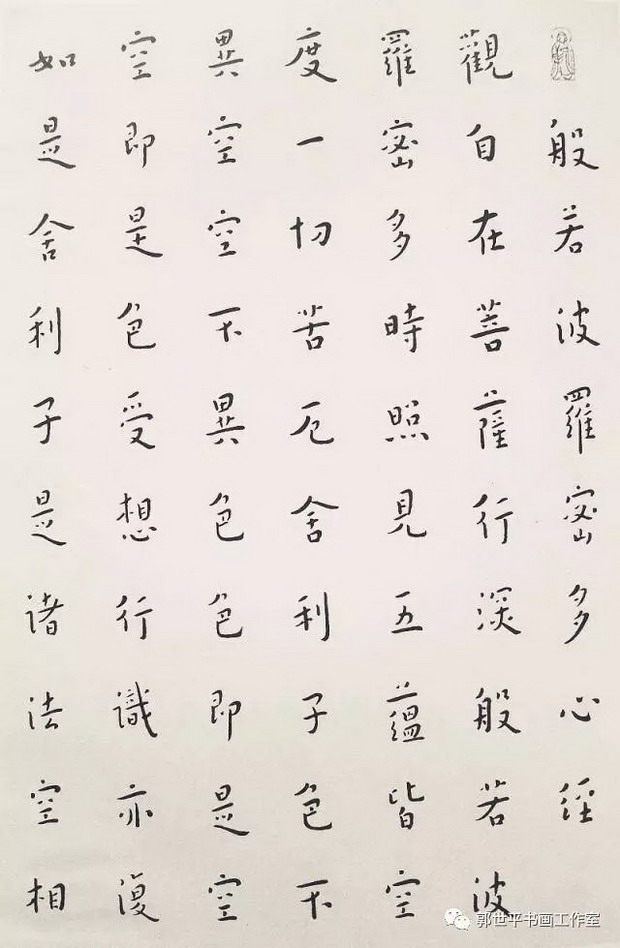 般若波羅密多心經
觀自在菩薩行深般若波
羅密多時照見五蘊皆空
度一切苦厄舍利子色不
異空空不異色色即是空
空即是色受想行識亦復
如是舍利子是諸法空相
郭世平书画工作室